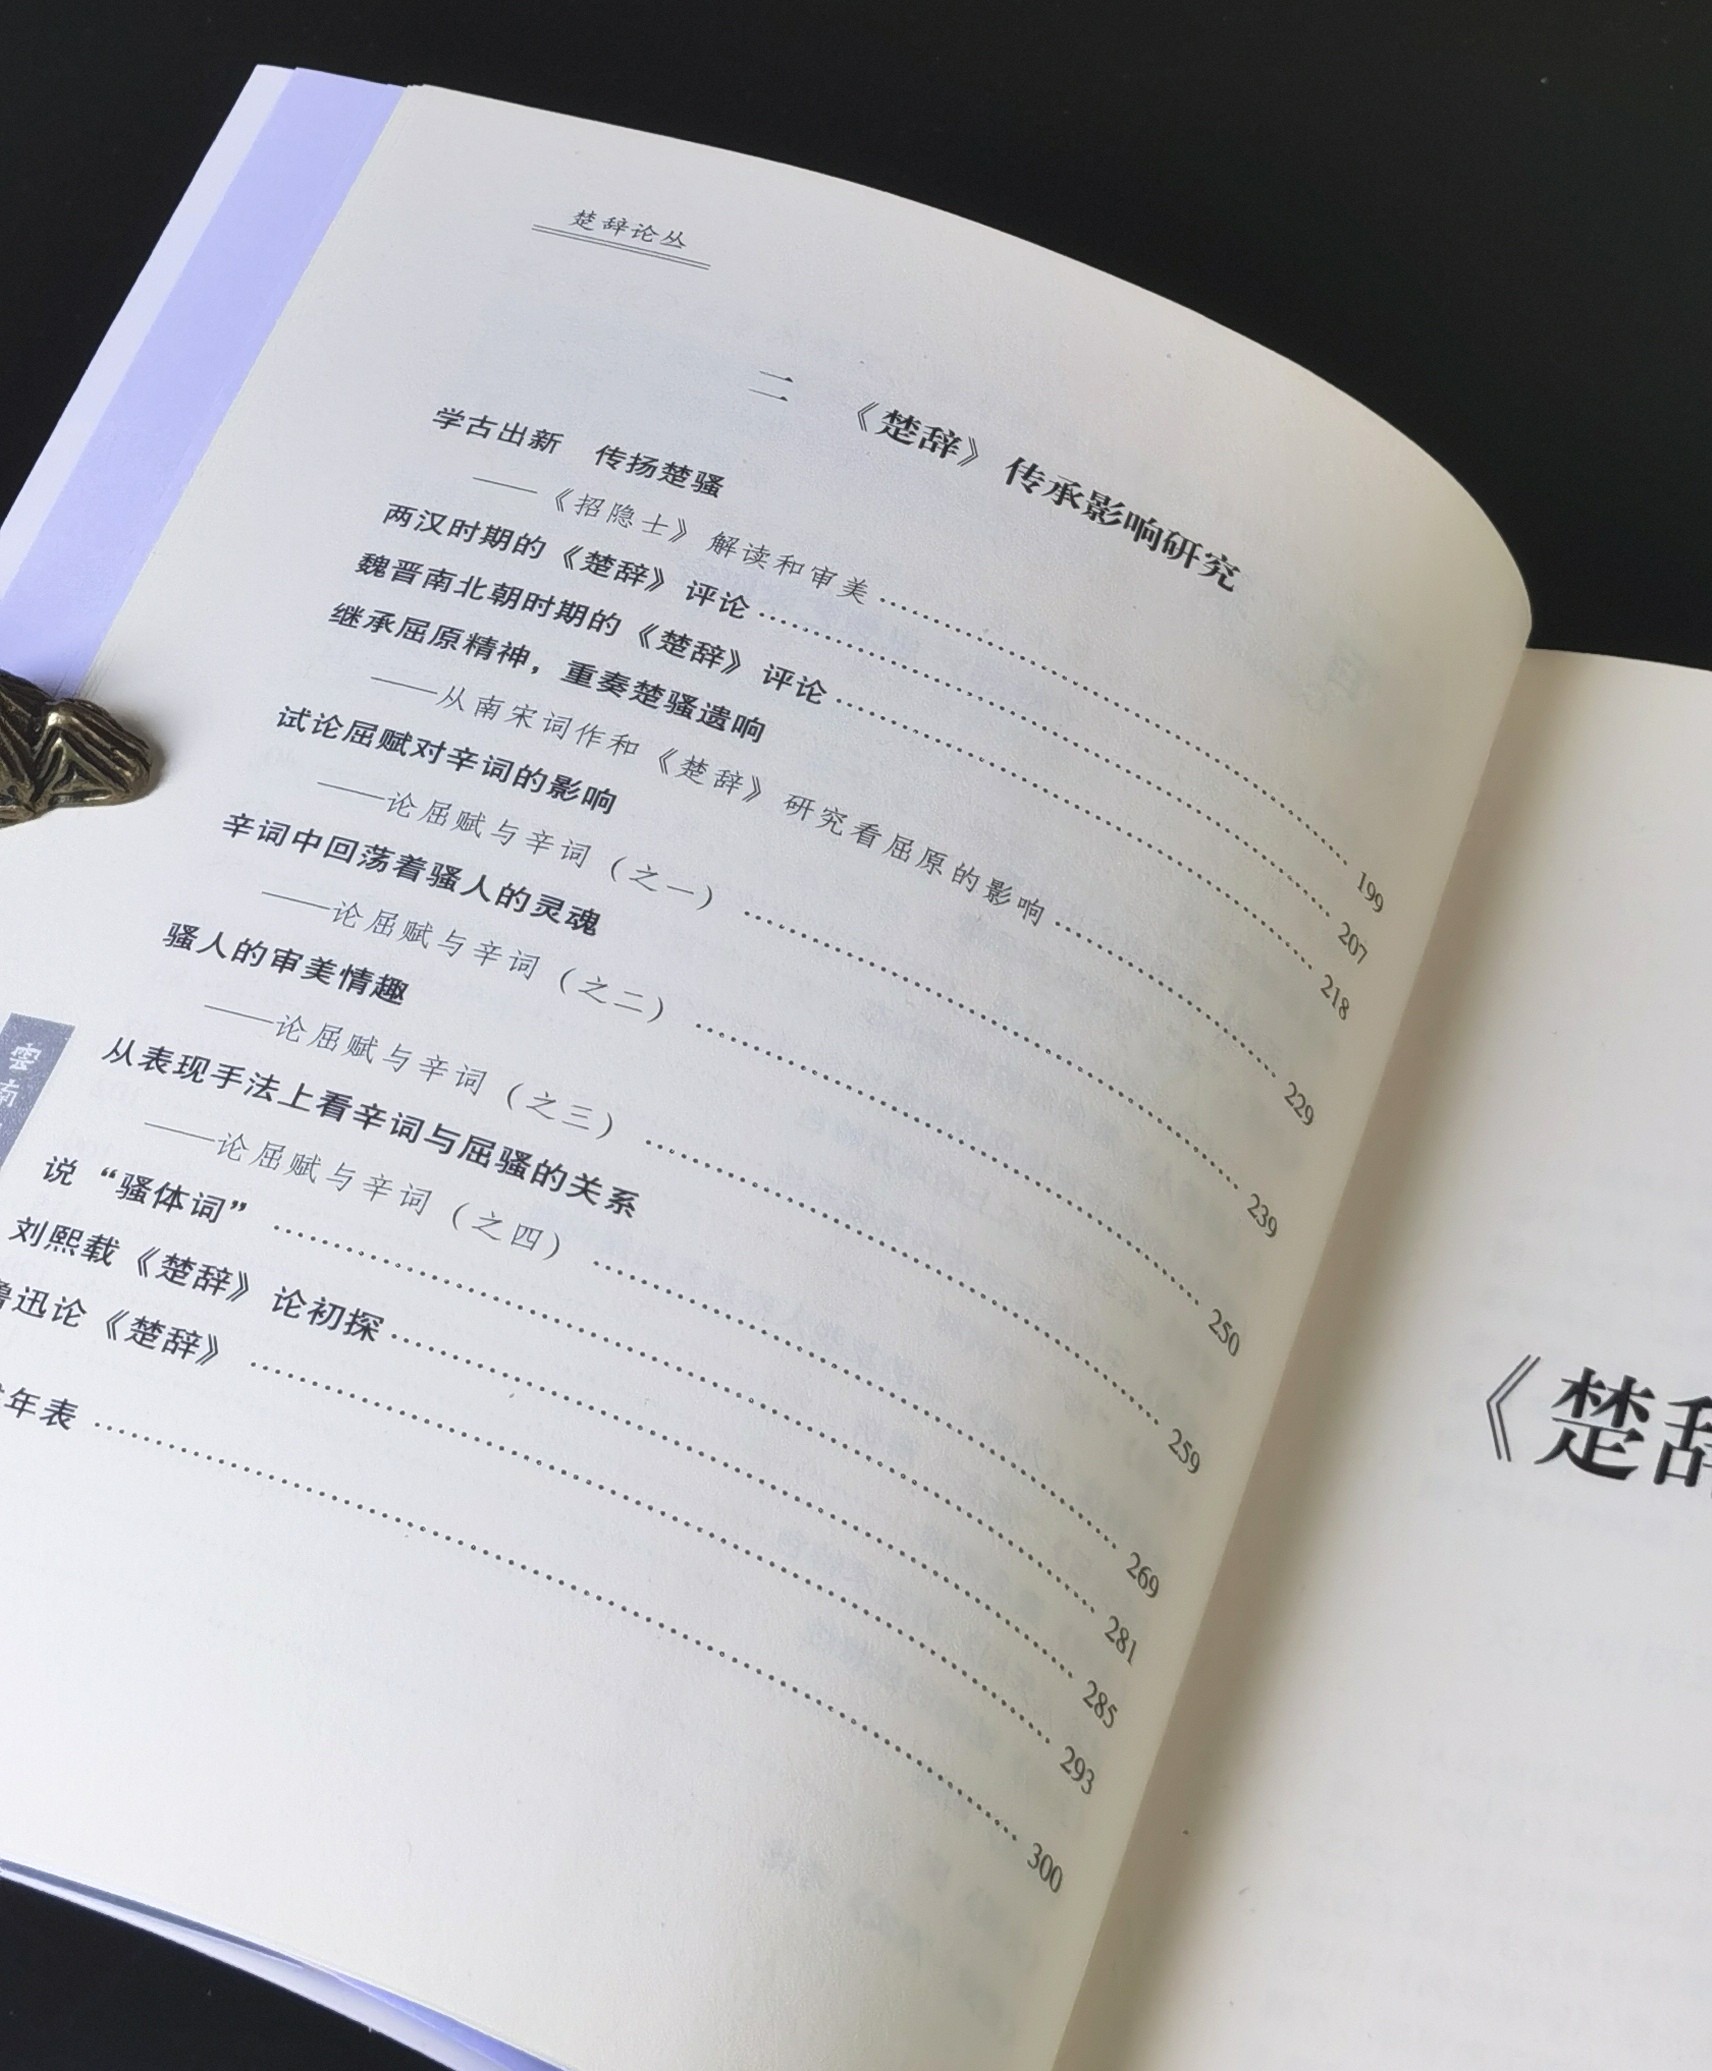 楚辞论丛
二 《楚辞》传承影响研究
学古出新 传扬楚骚
——《招隐士》解读和审美……199
两汉时期的《楚辞》评论……207
魏晋南北朝时期的《楚辞》评论……218
继承屈原精神，重奏楚骚遗响
——从南宋词作和《楚辞》研究看屈原的影响……229
试论屈赋对辛词的影响
——论屈赋与辛词（之一）……239
辛词中回荡着骚人的灵魂
——论屈赋与辛词（之二）……250
骚人的审美情趣
——论屈赋与辛词（之三）……259
从表现手法上看辛词与屈骚的关系
——论屈赋与辛词（之四）……269
说“骚体词”……281
刘熙载《楚辞》论初探……285
鲁迅论《楚辞》……293
年表……300
雲南
《楚辞